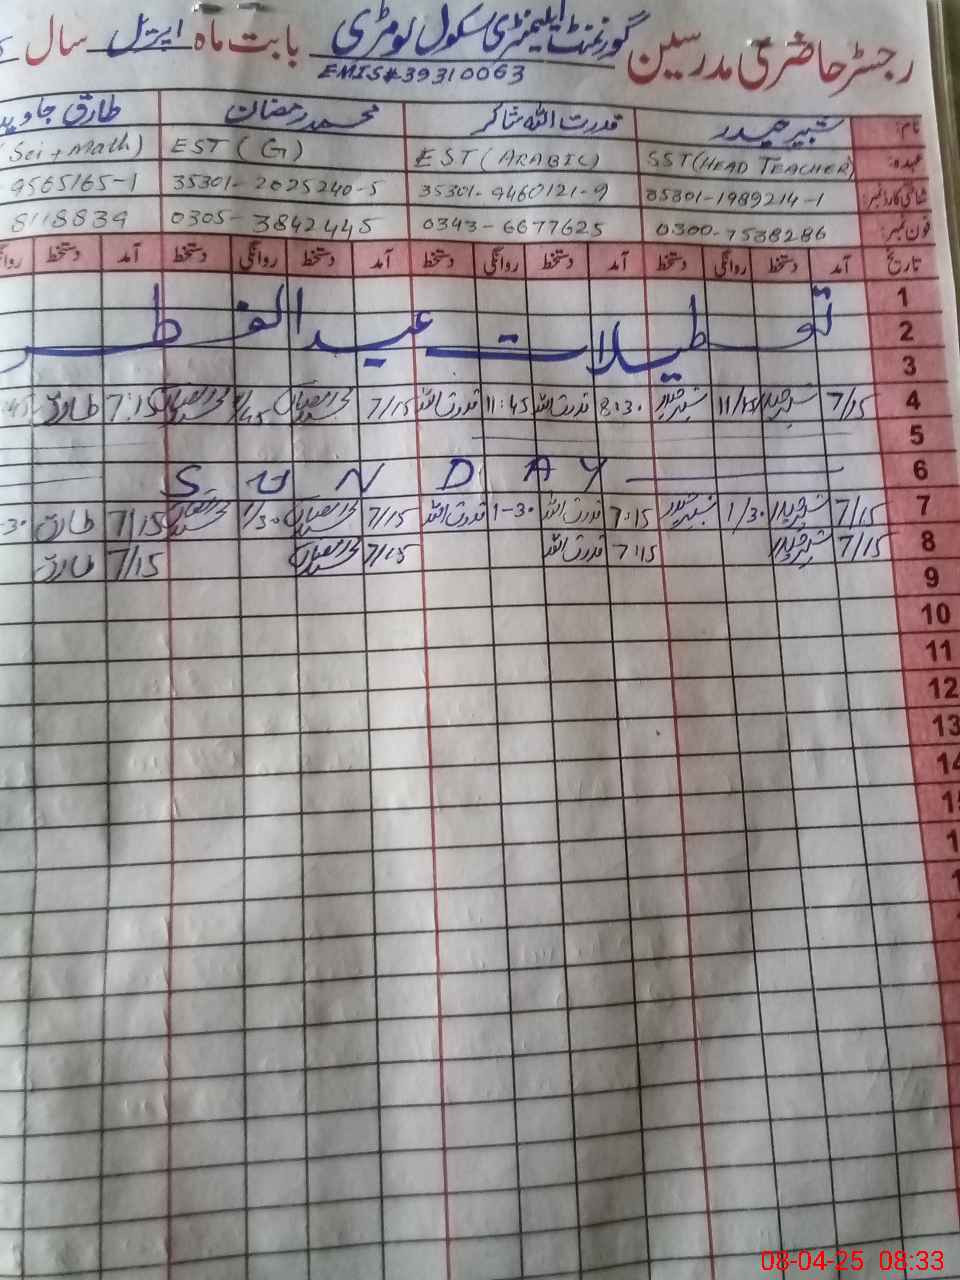 رجسٹر حاضری مدرسین گورنمنٹ ایلیمنٹری سکول لومڑی بابت ماہ اپریل سال
EMIS#39310063
نام: شبیر حیدر قدرت اللہ شاکر محمد رمضان طارق جاوید
عہدہ: SST (HEAD TEACHER) EST (ARABIC) EST (G) (Sci + Math)
شناختی کارڈ نمبر: 35301-1989214-1 35301-9460121-9 35301-2025240-5 9565165-1
فون نمبر: 0300-7538286 0343-6677625 0305-3842445 8118839
تاریخ آمد دستخط روانگی دستخط آمد دستخط روانگی دستخط آمد دستخط روانگی دستخط آمد دستخط
1
2 توطیلات عید الفطر
3
4 7/15 شبیر حیدر 11/45 شبیر حیدر 8:30 قدرت اللہ 11:45 قدرت اللہ 7/15 7:15 طارق
5
6 SUNDAY
7 7/15 شبیر حیدر 1/30 شبیر حیدر 7:15 قدرت اللہ 1-30 قدرت اللہ 7/15 1/30 7/15 طارق
8 7/15 شبیر حیدر 7:15 قدرت اللہ 7/15 7/15 طارق
9
10
11
12
13
14
08-04-25 08:33